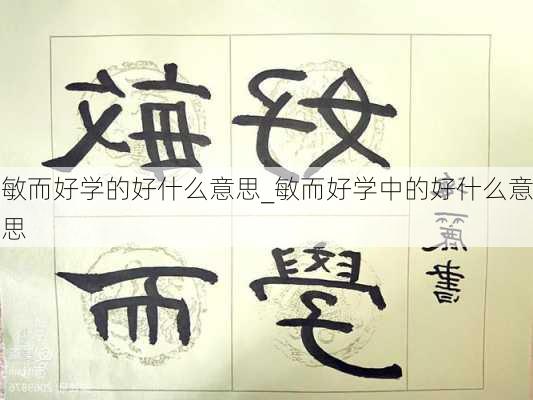 敏而好学的好什么意思_敏而好学中的好什么意
思
敏而
好學
麗書